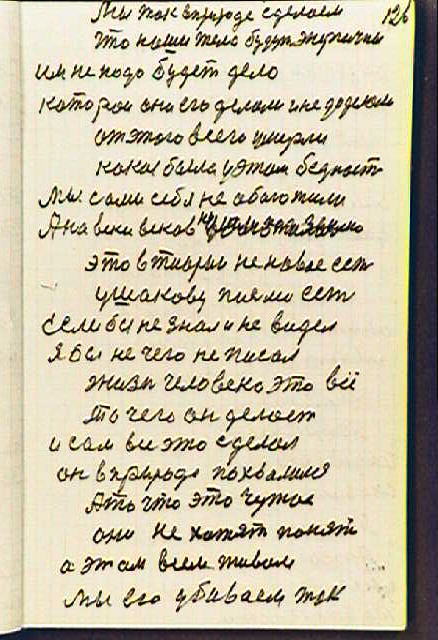 126
Мы так в природе сделаем
что наши тела будут энергичны
им не надо будет дело
которои они его делали и не доделали
от этого всего умерли
какая была у этом бедност
Мы сами себя не обогатили
А на веки веков
это в теории не новое ест
ушакову ест
Если бы не знал и не видел
я бы не чего не писал
жизн человека это всё
то чего он делает
и сам все это сделал
он в природе похвалился
А то что это чужое
они не хотят понят
а этом всем живом
Мы его убиваем так